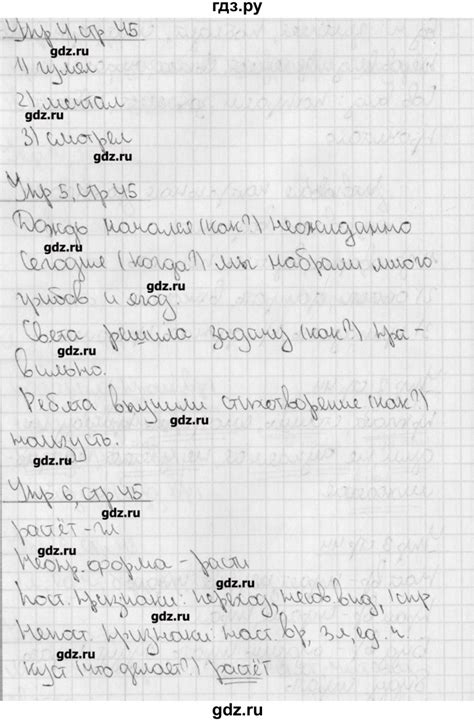 гдз.ру
Упр 4, стр 45
gdz.ru
1) гулял
gdz.ru
2) мечтал
gdz.ru
3) смотрел
gdz.ru
Упр 5, стр 45
gdz.ru
Дождь начался (как?) неожиданно
gdz.ru
Сегодня (когда?) мы набрали много
gdz.ru
грибов и ягод
gdz.ru
Света решила задачу (как?) пра-
gdz.ru
вильно.
gdz.ru
Ребята выучили стихотворение (как?)
gdz.ru
наизусть.
gdz.ru
Упр 6, стр 45
gdz.ru
растёт - гл
gdz.ru
Неопр. форма - расти
gdz.ru
Пост. признаки: неперех, несов. вид, 1 спр
gdz.ru
Непост. признаки наст. вр, 3 л, ед. ч.
gdz.ru
куст (что делает?) растёт
gdz.ru
гдз.ру